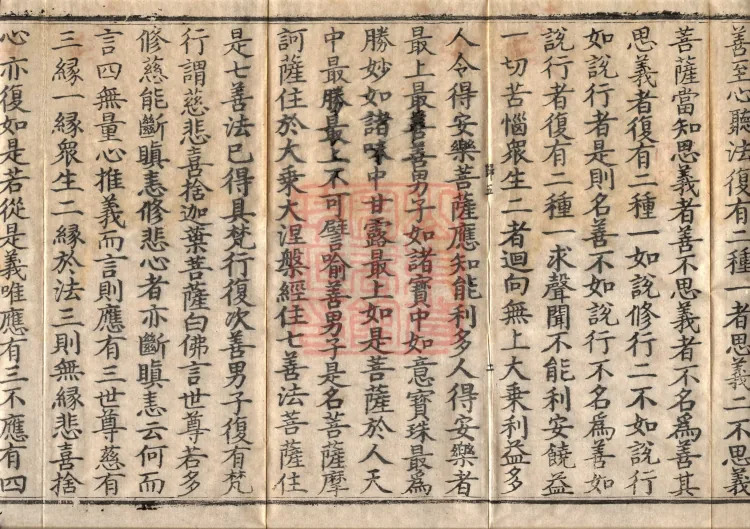 善至心聽法復有二種一者思義二不思義
菩薩當知思義者善不思義者不名爲善其
思義者復有二種一如說修行二不如說行
如說行者是則名善不如說行不名爲善如
說行者復有二種一求聲聞不能利安饒益
一切苦惱衆生二者迴向無上大乘利益多
五 二
人令得安樂菩薩應知能利多人得安樂者
最上最善善男子如諸寶中如意寶珠最爲
勝妙如諸味中甘露最上如是菩薩於人天
中最勝最上不可譬喻善男子是名菩薩摩
訶薩住於大乘大涅槃經住七善法菩薩住
是七善法已得具梵行復次善男子復有梵
行謂慈悲喜捨迦葉菩薩白佛言世尊若多
修慈能斷瞋恚修悲心者亦斷瞋恚云何而
言四無量心推義而言則應有三世尊慈有
三緣一緣衆生二緣於法三則無緣悲喜捨
心亦復如是若從是義唯應有三不應有四